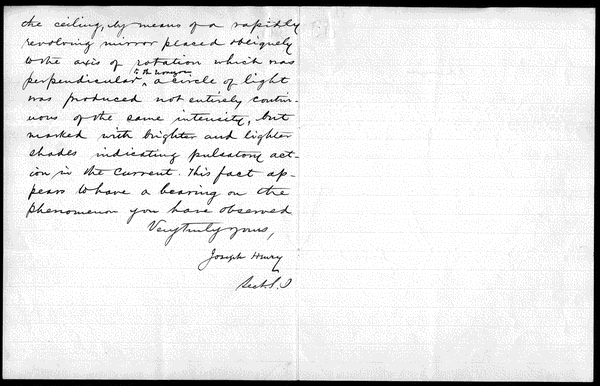 the ceiling, by means of a rapidly
revolving mirror placed obliquely
to the axis of rotation which was
to the horizon
perpendicular ^ a circle of light
was produced not entirely contin-
uous of the same intensity, but
marked with brighter and lighter
shades indicating pulsatory act-
ion in the current. This fact ap-
pears to have a bearing on the
phenomenon you have observed
Very truly yours,
Joseph Henry
Sect S. I